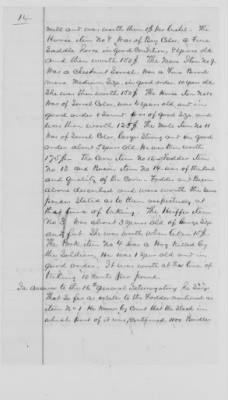 14.
well and was worth them 18$ per bushel. The
Horse Item No 8 was of Bay Color, a fine
Saddle Horse in good Condition, 9 years old
and then worth 150$. The Mare Item No 9
Was a Chestnut Sorrel. Was a fine Brood
Mare Medium Size in good order 10 years old
She was then worth 150$. The Horse Item No 10
Was of Sorrel Color, was 6 years old and in
good order & Sound. Was of good Size and
was then worth 125$. The Mule Item No 11
of Sorrel Color large Strong and in good
order about 5 years old. He was then worth
175$. The Corn Item No 12 Fodder Item
No 13 and Bacon Item No 14 were of the kind
and quality of the Corn Fodder and Bacon
above described and were worth the Same
per Stated as to them respectively, at
that time of taking. The Heiffer Item
No 3 was about 3 years old of large Size
and fat. She was worth when taken 15$.
The Pork Item No 4 was a Hog Killed by
the Soldiers, He was 1 year old and in
good order. It was worth at the time of
taking 10 cents per pound.
In answer to the 16th General Interrogatory He Says
That So far as relates to the Fodder mentioned as
Item No 1 He knows by Count that the Stack in
which part of it was, Contained 1100 Bundles